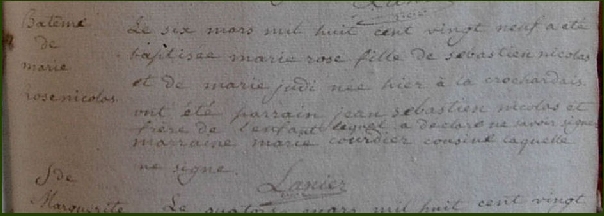 Batême
de
marie
rose nicolas.
Le six mars mil huit cent vingt neuf a été
baptisée marie rose fille de sebastien nicolas
et de marie judi née hier à la crochardais.
ont été parrain jean sebastien nicolas et
frère de l'enfant lequel a declare ne savoir signer
marraine marie courdier cousine laquelle
ne signe.
Lanier
S. de
Marguerite
Le quatre mars mil huit cent vingt